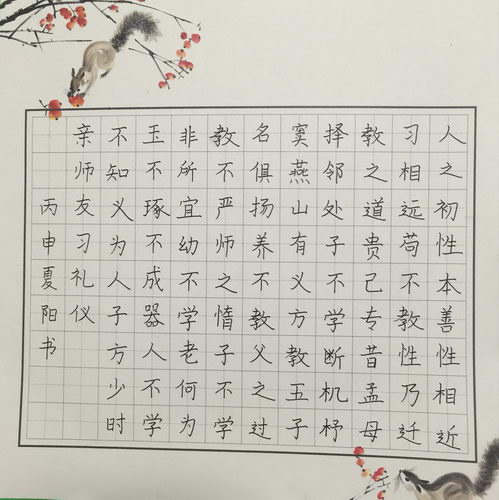 人之初性本善性相近
习相远苟不教性乃迁
教之道贵己专昔孟母
择邻处子不学断机杼
窦燕山有义方教五子
名俱扬养不教父之过
教不严师之惰子不学
非所宜幼不学老何为
玉不琢不成器人不学
不知义为人子方少时
亲师友习礼仪
丙申夏阳书